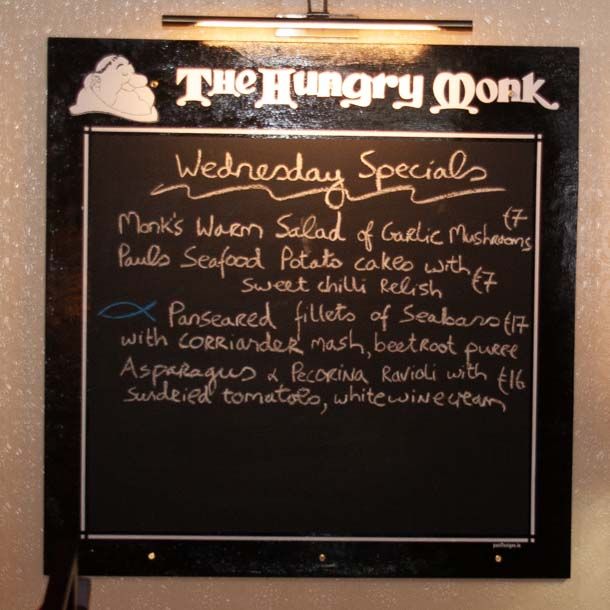 The Hungry Monk
Wednesday Specials
Monk's Warm Salad of Garlic Mushrooms €7
Pauls Seafood Potato cakes with
sweet chilli Relish €7
Panseared fillets of Seabass €17
with corriander mash, beetroot puree
Asparagus & Pecorina Ravioli with €16
sundried tomatoes, white wine cream